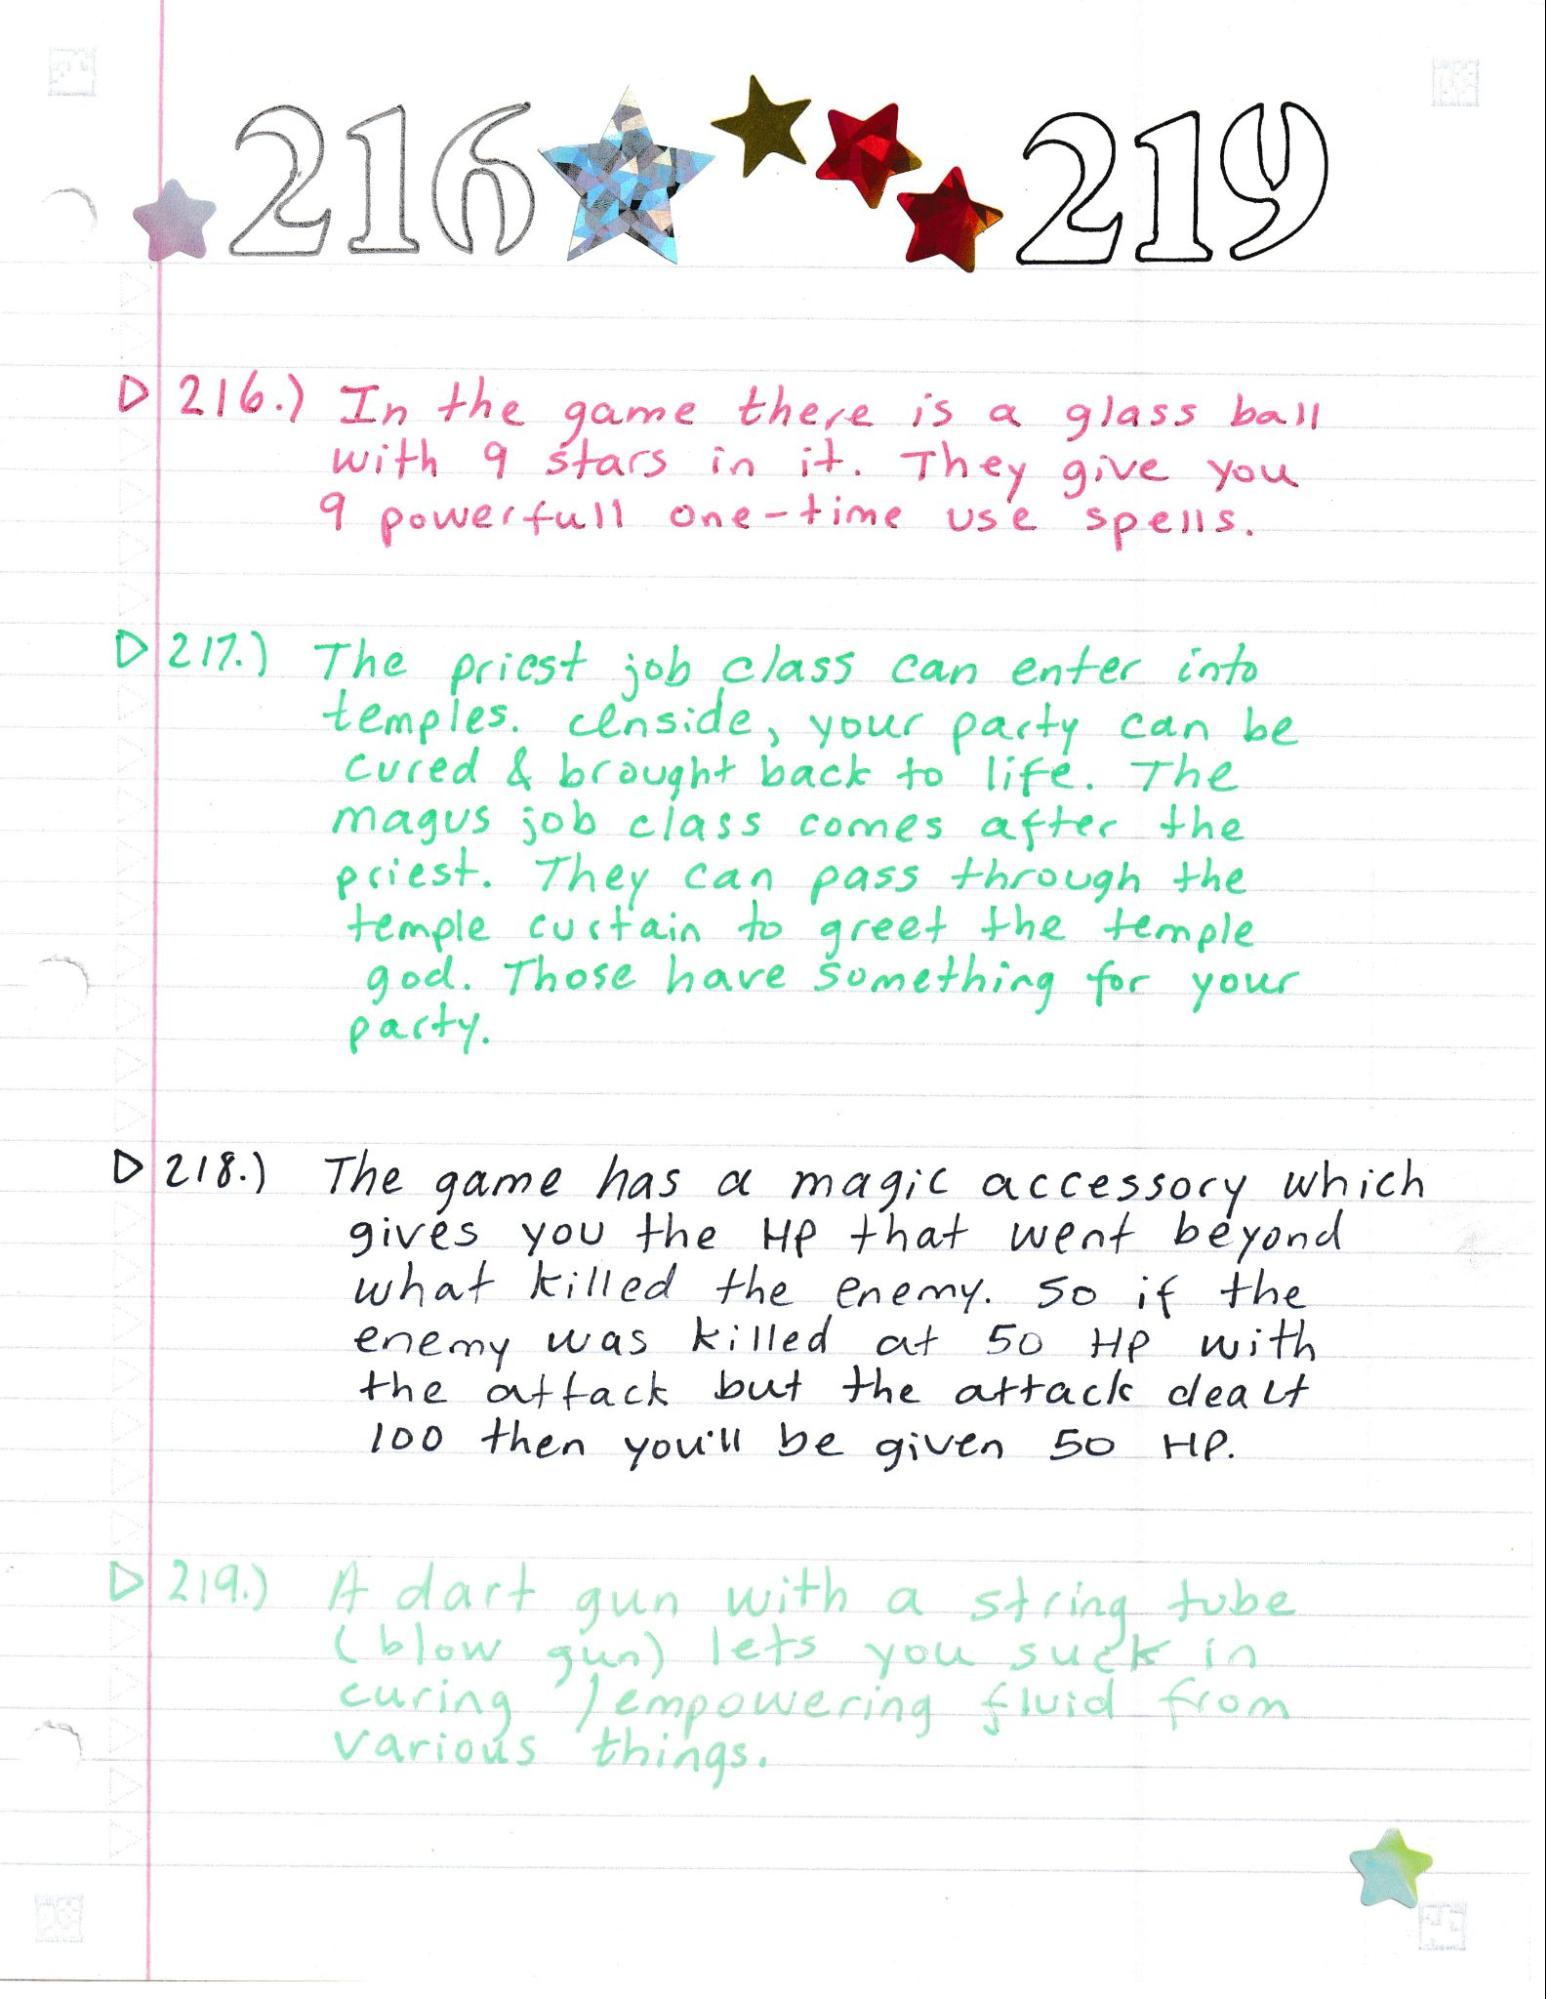 216 219
▷ 216.) In the game there is a glass ball
with 9 stars in it. They give you
9 powerfull one-time use spells.
▷ 217.) The priest job class can enter into
temples. Inside, your party can be
cured & brought back to life. The
magus job class comes after the
priest. They can pass through the
temple curtain to greet the temple
god. Those have something for your
party.
▷ 218.) The game has a magic accessory which
gives you the HP that went beyond
what killed the enemy. So if the
enemy was killed at 50 HP with
the attack but the attack dealt
100 then you'll be given 50 HP.
▷ 219.) A dart gun with a string tube
(blow gun) lets you suck in
curing / empowering fluid from
various things.